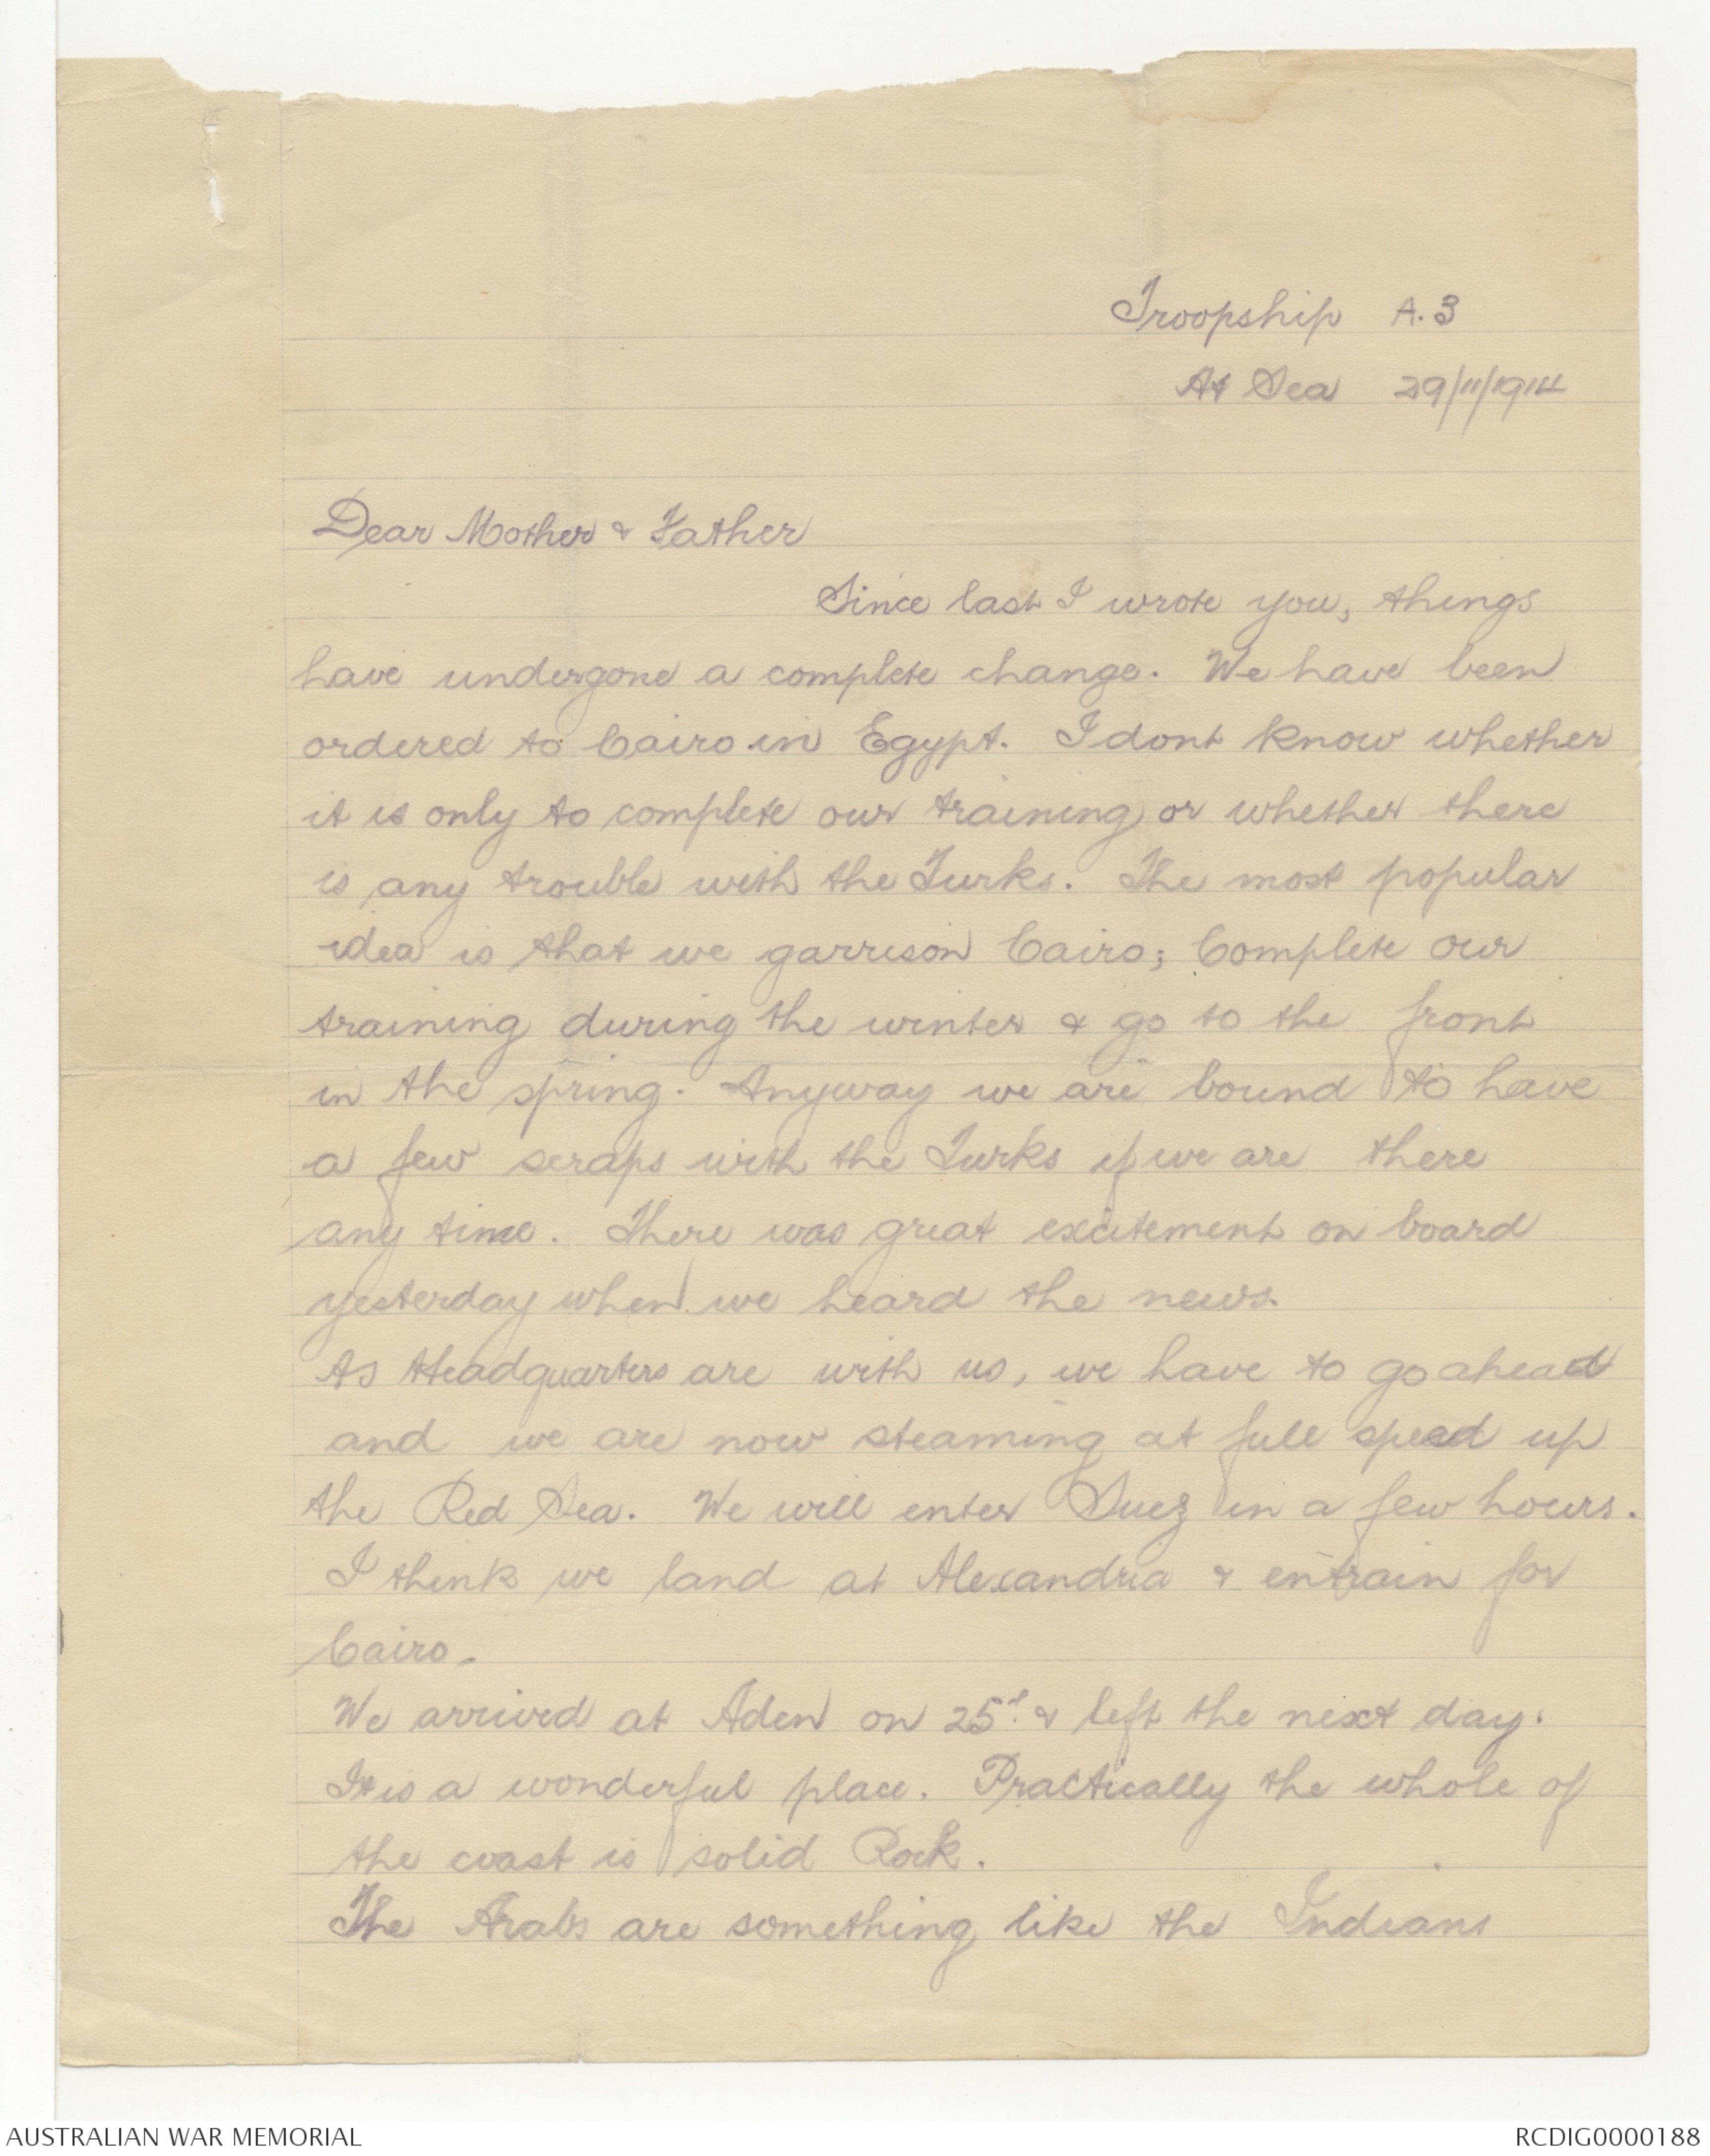 Troopship A.3
At Sea 29/11/1914
Dear Mother & Father
Since last I wrote you, things
have undergone a complete change. We have been
ordered to Cairo in Egypt. I dont know whether
it is only to complete our training or whether there
is any trouble with the Turks. The most popular
idea is that we garrison Cairo; Complete our
training during the winter & go to the front
in the spring. Anyway we are bound to have
a few scraps with the Turks if we are there
any time. There was great excitement on board
yesterday when we heard the news.
As Headquarters are with us, we have to go ahead
and we are now steaming at full speed up
the Red Sea. We will enter Suez in a few hours.
I think we land at Alexandria & entrain for
Cairo.
We arrived at Aden on 25th & left the next day.
It is a wonderful place. Practically the whole of
the coast is solid Rock.
The Arabs are something like the Indians
AUSTRALIAN WAR MEMORIAL
RCDIG0000188